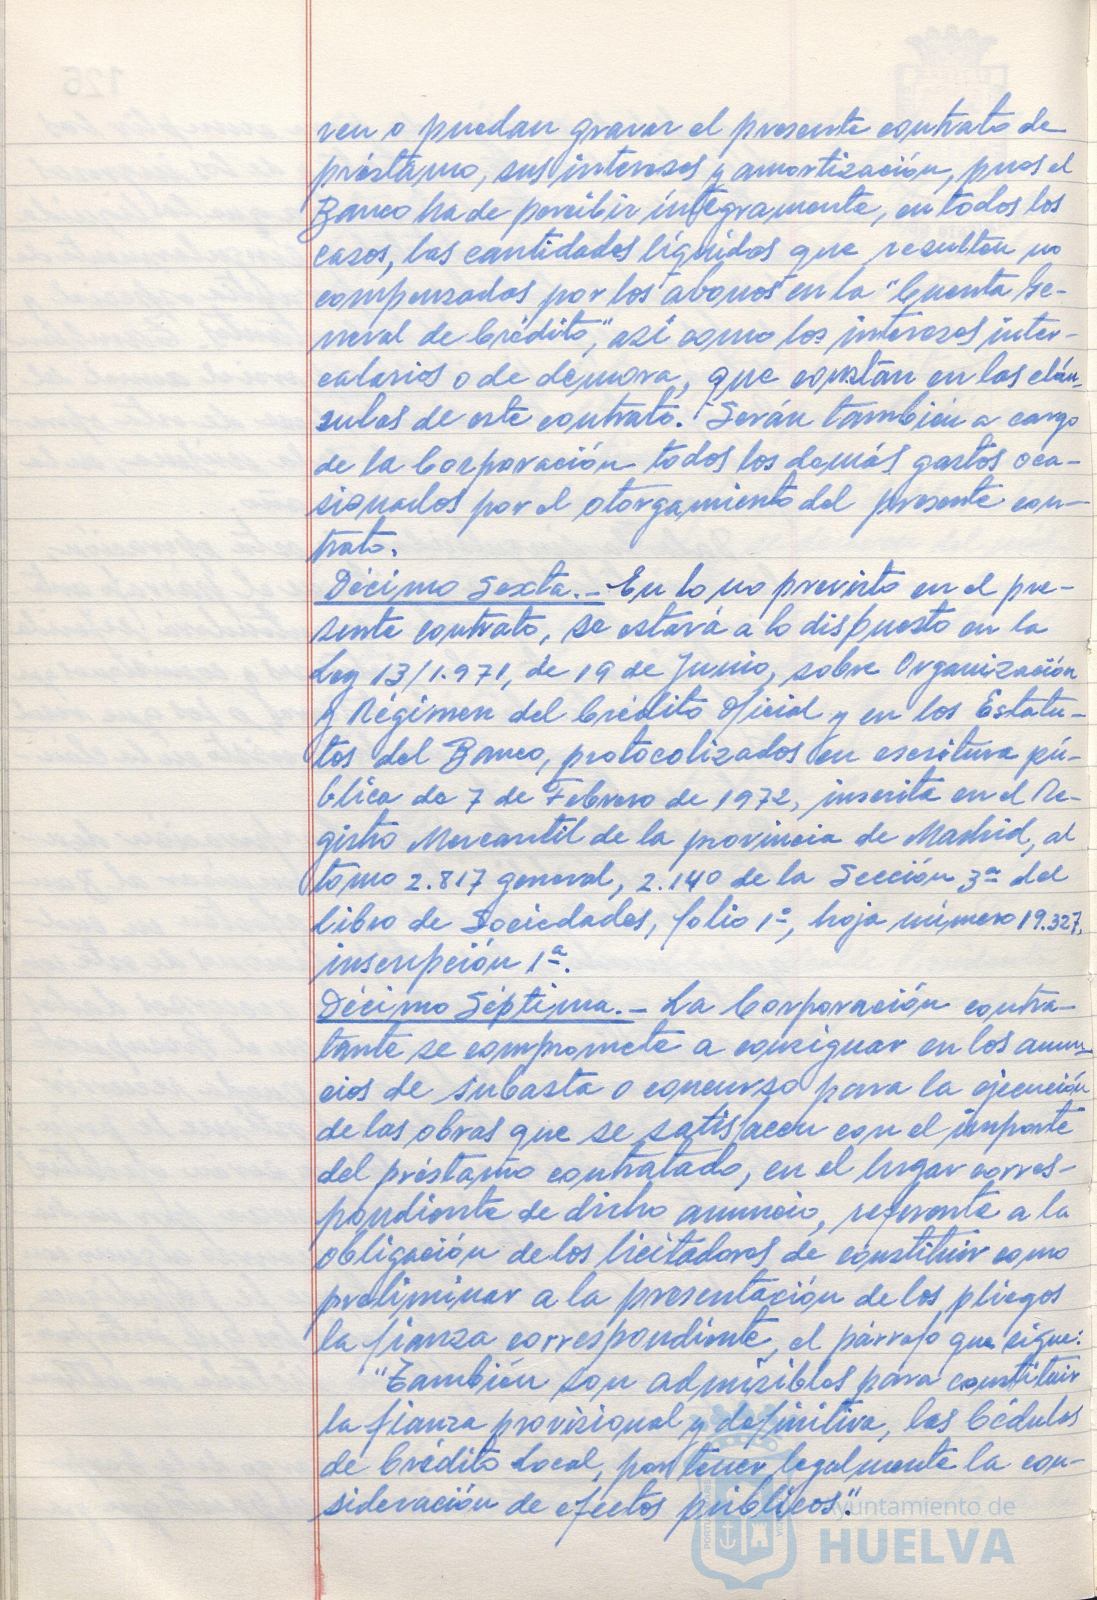 ven o puedan gravar el presente contrato de
préstamo, sus intereses y amortización, pues el
Banco ha de percibir íntegramente, en todos los
casos, las cantidades líquidas que resulten no
compensadas por los abonos en la "Cuenta Ge-
neral de Crédito", así como los intereses inter-
calarios o de demora, que constan en las cláu-
sulas de este contrato. Serán también a cargo
de la Corporación todos los demás gastos oca-
sionados por el otorgamiento del presente con-
trato.
Décimo Sexta.- En lo no previsto en el pre-
sente contrato, se estará a lo dispuesto en la
Ley 13/1.971, de 19 de Junio, sobre Organización
y Régimen del Crédito Oficial y en los Estatu-
tos del Banco, protocolizados en escritura pú-
blica de 7 de Febrero de 1972, inscrita en el Re-
gistro Mercantil de la provincia de Madrid, al
tomo 2.817 general, 2.140 de la Sección 3ª del
libro de Sociedades, folio 1º, hoja número 19.327,
inscripción 1ª.
Décimo Séptima.- La Corporación contra-
tante se compromete a consignar en los anun-
cios de subasta o concurso para la ejecución
de las obras que se satisfacen con el importe
del préstamo contratado, en el lugar corres-
pondiente de dicho anuncio, referente a la
obligación de los licitadores de constituir como
preliminar a la presentación de los pliegos
la fianza correspondiente, el párrafo que sigue:
"También son admisibles para constituir
la fianza provisional y definitiva, las Cédulas
de Crédito Local, por tener legalmente la con-
sideración de efectos públicos".
Ayuntamiento de
HUELVA